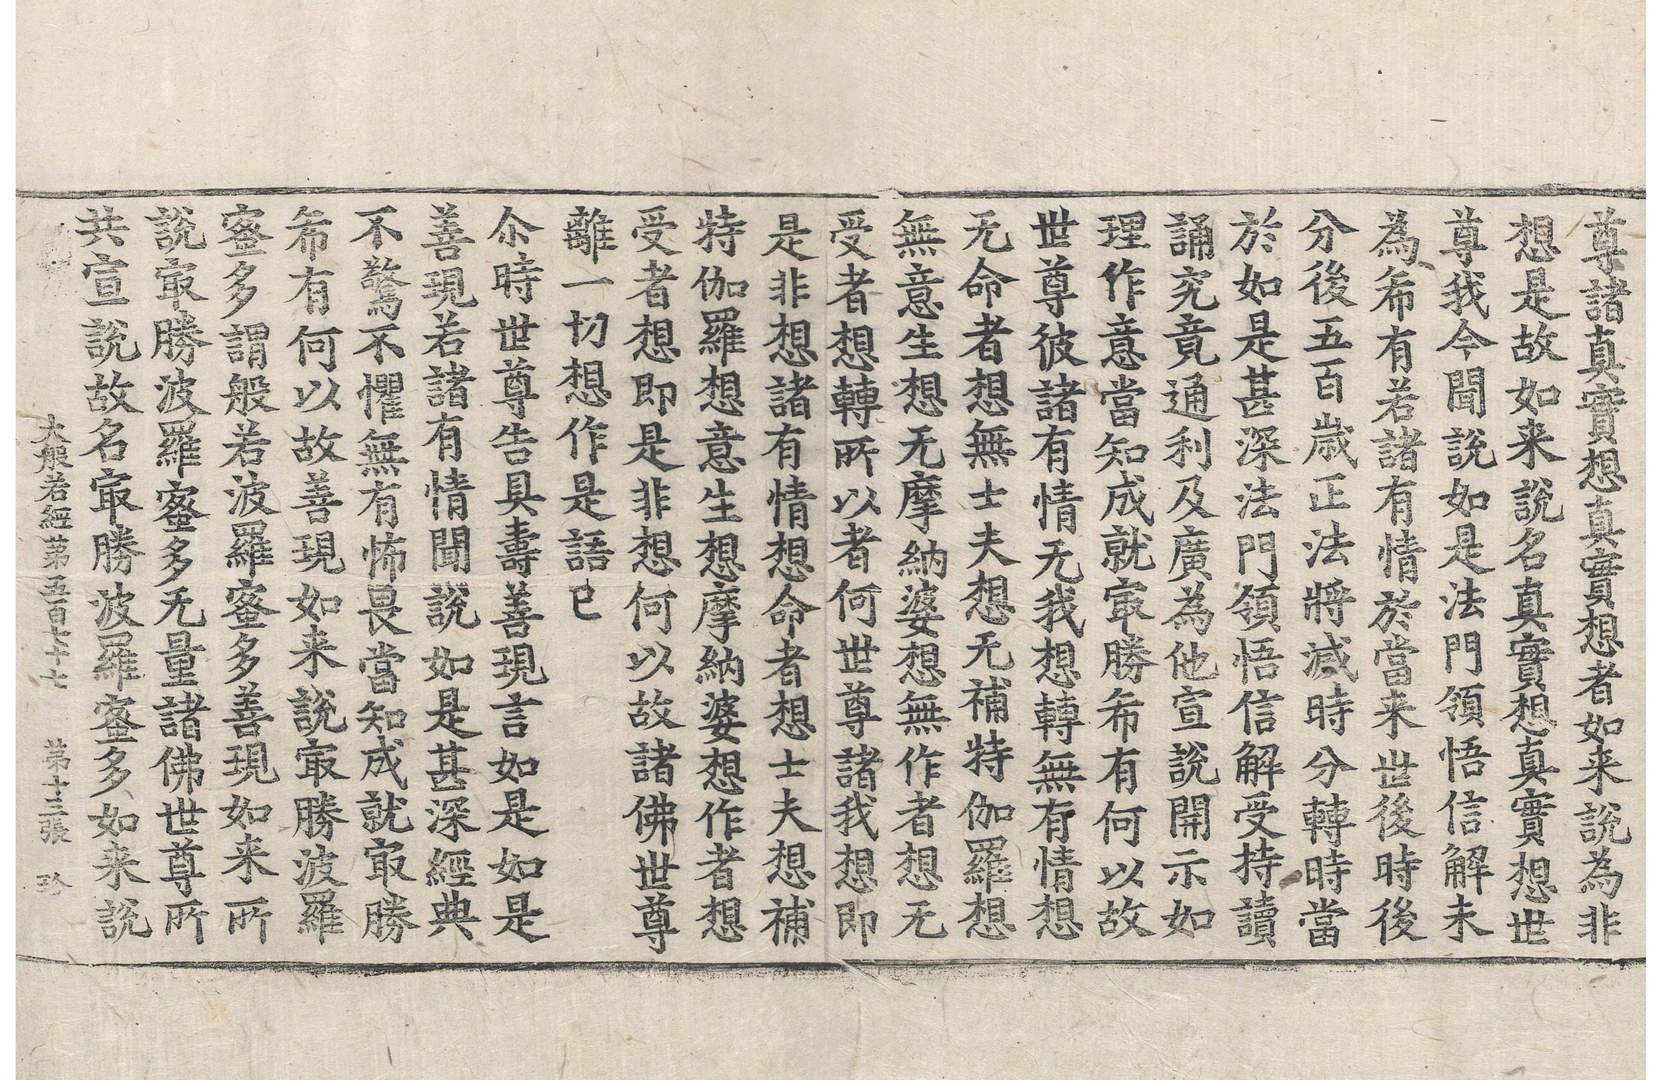 尊諸真實想真實想者如来說為非
想是故如来說名真實想真實想世
尊我今聞說如是法門領悟信解未
為希有若諸有情於當来世後時後
分後五百歲正法將滅時分轉時當
於如是甚深法門領悟信解受持讀
誦究竟通利及廣為他宣說開示如
理作意當知成就㝡勝希有何以故
世尊彼諸有情无我想轉無有情想
无命者想無士夫想无補特伽羅想
無意生想无摩納婆想無作者想无
受者想轉所以者何世尊諸我想即
是非想諸有情想命者想士夫想補
特伽羅想意生想摩納婆想作者想
受者想即是非想何以故諸佛世尊
離一切想作是語已
尒時世尊告具壽善現言如是如是
善現若諸有情聞說如是甚深經典
不驚不懼無有怖畏當知成就㝡勝
希有何以故善現如来說㝡勝波羅
蜜多謂般若波羅蜜多善現如来所
說㝡勝波羅蜜多无量諸佛世尊所
共宣說故名㝡勝波羅蜜多如来說
大般若經第五百七十七 第十三張 珍